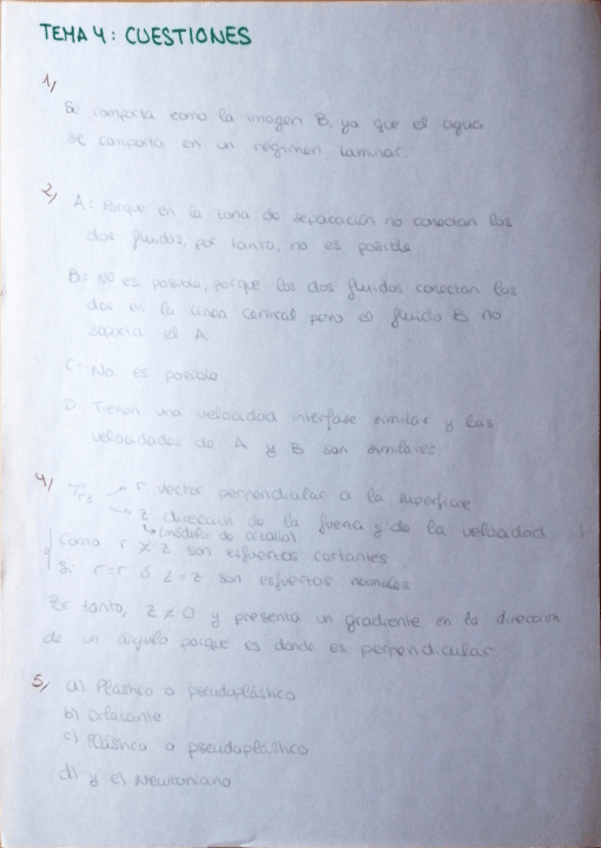 TEMA 4: CUESTIONES
1)
Se comporta como la imagen B, ya que el agua
se comporta en un régimen laminar.
2)
A: Porque en la zona de separación no conectan los
dos fluidos, por tanto, no es posible
B: No es posible, porque los dos fluidos conectan los
dos en la línea central pero el fluido B no
soporta el A
C: No es posible
D: Tienen una velocidad interfase similar y las
velocidades de A y B son similares
4) τrz → r vector perpendicular a la superficie
→ z dirección de la fuerza y de la velocidad
↳ (módulo de cizalla)
Como r ≠ z son esfuerzos cortantes
Si r=r ó z=z son esfuerzos normales
Por tanto, z ≠ 0 y presenta un gradiente en la dirección
de un ángulo porque es donde es perpendicular
5) a) Plástico o pseudoplástico
b) Dilatante
c) Plástico o pseudoplástico
d) y e) Newtoniano